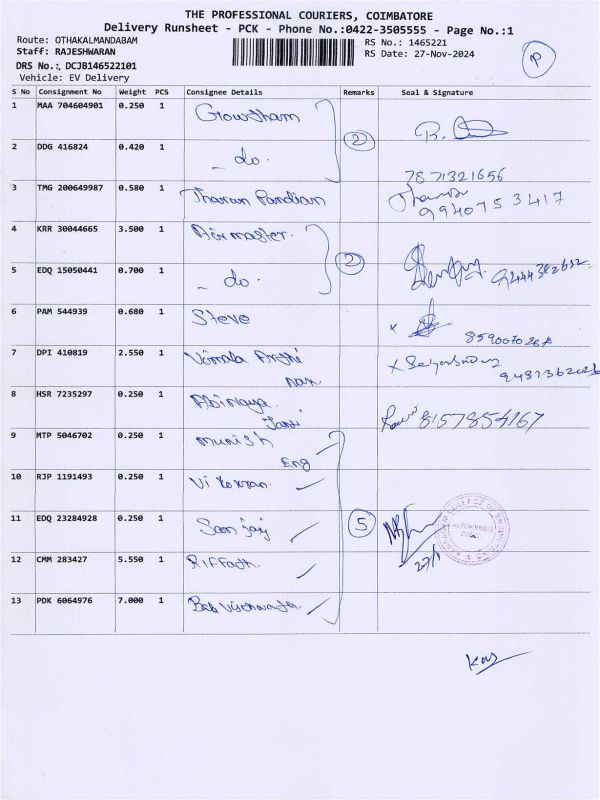 THE PROFESSIONAL COURIERS, COIMBATORE
Delivery Runsheet - PCK - Phone No.:0422-3505555 - Page No.:1
Route: OTHAKALMANDABAM
RS No.: 1465221
Staff: RAJESHWARAN
RS Date: 27-Nov-2024
P
DRS No.:, DCJB146522101
Vehicle: EV Delivery
S No Consignment No Weight PCS Consignee Details Remarks Seal & Signature
1 MAA 704604901 0.250 1 Gowtham
2
2 DDG 416824 0.420 1 - do.
7871321656
3 TMG 200649987 0.580 1 Tharun Pandian
9940753417
4 KRR 30044665 3.500 1 Airmaster.
2
5 EDQ 15050441 0.700 1 - do.
6 PAM 544939 0.680 1 Steve x
7 DPI 410819 2.550 1 Vimala x
8 HSR 7235297 0.250 1 Abinaya 8157854167
9 MTP 5046702 0.250 1 Munish
Eng
10 RJP 1191493 0.250 1
5
11 EDQ 23284928 0.250 1 Sanjay
COLLEGE OF
AUTONOMOUS
27/11
12 CMM 283427 5.550 1 Riffath.
13 PDK 6064976 7.000 1